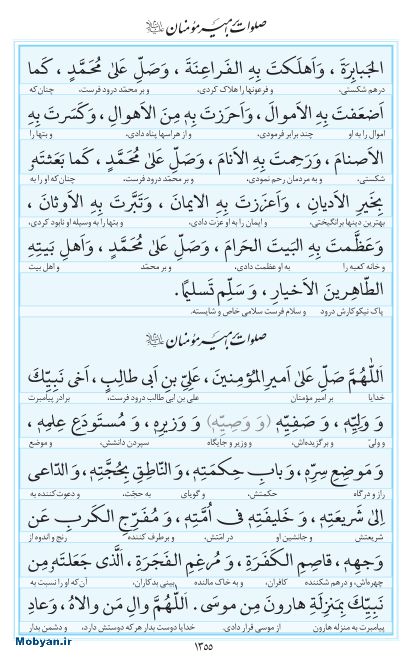 صلوات بر امیر مؤمنان علیه‌السلام
الجَبابِرَةَ ، وَ اَهلَكتَ بِهِ الفَراعِنَةَ ، وَصَلِّ عَلىٰ مُحَمَّدٍ ، كَما
درهم شکستی، و فرعونها را هلاک کردی، و بر محمّد درود فرست، چنان‌که
اَضعَفتَ بِهِ الاَموالَ ، وَ اَحرَزتَ بِهِ مِنَ الاَهوالِ ، وَ كَسَرتَ بِهِ
اموال را به او چند برابر فرمودی، و از هراسها پناه دادی، و بتها را
الاَصنامَ ، وَ رَحِمتَ بِهِ الاَنامَ ، وَصَلِّ عَلىٰ مُحَمَّدٍ ، كَما بَعَثتَهٗ
شکستی، و به مردمان رحم نمودی، و بر محمّد درود فرست، چنان‌که او را به
بِخَيرِ الاَديانِ ، وَ اَعزَزتَ بِهِ الايمانَ ، وَ تَبَّرتَ بِهِ الاَوثانَ ،
بهترین دینها برانگیختی، و ایمان را به او عزت دادی، و بتها را به وسیله او نابود کردی،
وَ عَظَّمتَ بِهِ البَيتَ الحَرامَ ، وَ صَلِّ عَلىٰ مُحَمَّدٍ ، وَ اَهلِ بَيتِهِ
و خانه کعبه را به او عظمت دادی، و بر محمّد و اهل بیت
الطّاهِرينَ الاَخيارِ ، وَ سَلِّم تَسليمًا.
پاک نیکوکارش درود و سلام فرست سلامی خاص و شایسته.
صلوات بر امیر مؤمنان علیه‌السلام
اَللّٰهُمَّ صَلِّ عَلىٰ اَميرِ المُؤمِنينَ ، عَلِيِّ بنِ اَبى طالِبٍ ، اَخى نَبِيِّكَ
خدایا بر امیر مؤمنان علی بن ابی طالب درود فرست، برادر پیامبرت
وَ وَلِيِّهٖ ، وَ صَفِيِّهٖ (وَ وَصِيِّهٖ) وَ وَزيرِهٖ ، وَ مُستَودَعِ عِلمِهٖ ،
و ولیّ و برگزیده‌اش، و وزیر و جایگاه سپردن دانشش،
وَ مَوضِعِ سِرِّهٖ ، وَ بابِ حِكمَتِهٖ ، وَ النّاطِقِ بِحُجَّتِهٖ ، وَ الدّاعى
و موضع راز و درگاه حکمتش، و گویای به حجّت، و دعوت‌کننده به
اِلىٰ شَريعَتِهٖ ، وَ خَليفَتِهٖ فى اُمَّتِهٖ ، وَ مُفَرِّجِ الكَربِ عَن
شریعتش و جانشین او در امّتش، و برطرف کننده رنج و اندوه از
وَجهِهٖ ، قاصِمِ الكَفَرَةِ ، وَ مُرغِمِ الفَجَرَةِ ، اَلَّذى جَعَلتَهٗ مِن
چهره‌اش، و درهم شکننده کافران، و به خاک مالنده بینی بدکاران، آن‌که او را نسبت به
نَبِيِّكَ بِمَنزِلَةِ هارونَ مِن موسىٰ. اَللّٰهُمَّ والِ مَن والاهُ ، وَ عادِ
پیامبرت به منزله هارون از موسی قرار دادی. خدایا دوست بدار هر که دوستش دارد، و دشمن بدار
۱۳۵۵
Mobyan.ir